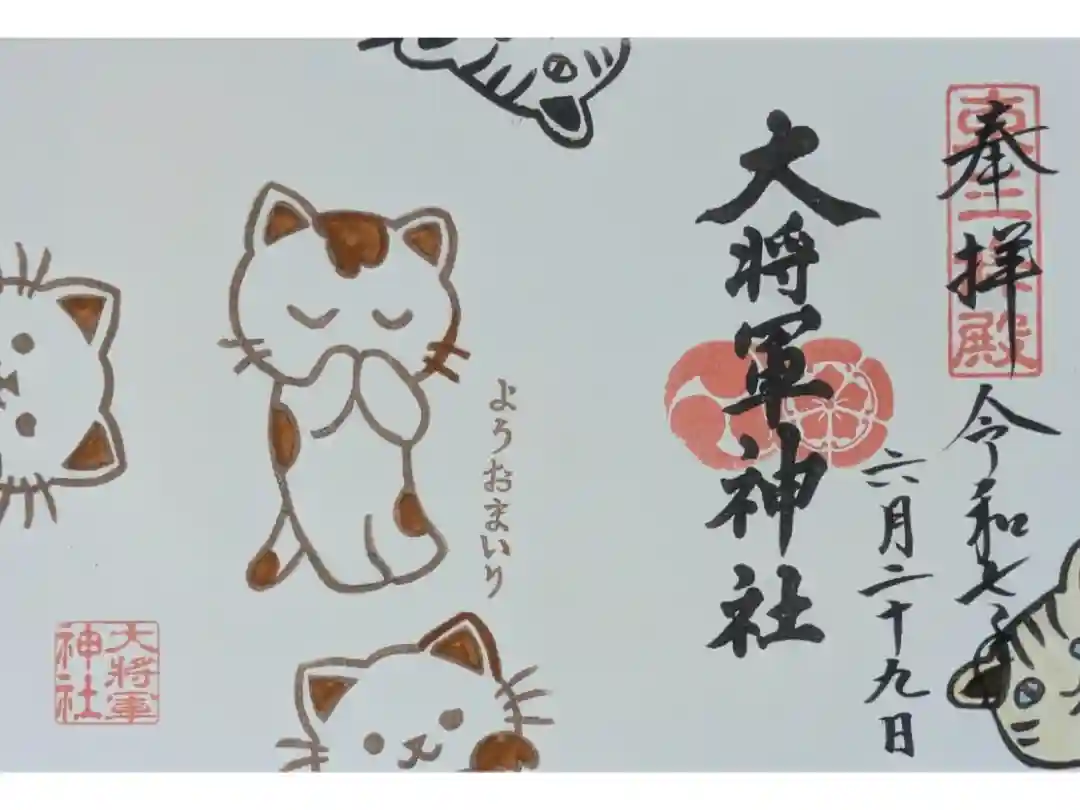 奉拝
東三條殿
令和七年
六月二十九日
大将軍神社
ようおまいり
大將軍
神社